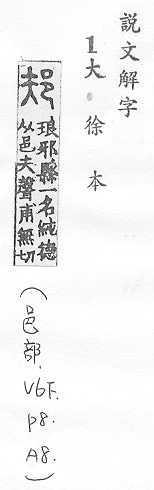 說文解字
1大徐本
邞 琅邪縣一名純德
从邑夫聲甫無切
(邑部. V6下. P8. A8.)